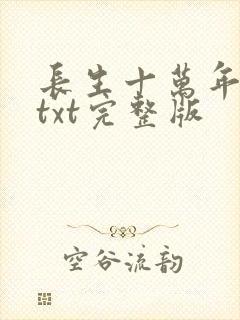 長生十萬年
txt完整版
空谷流韵